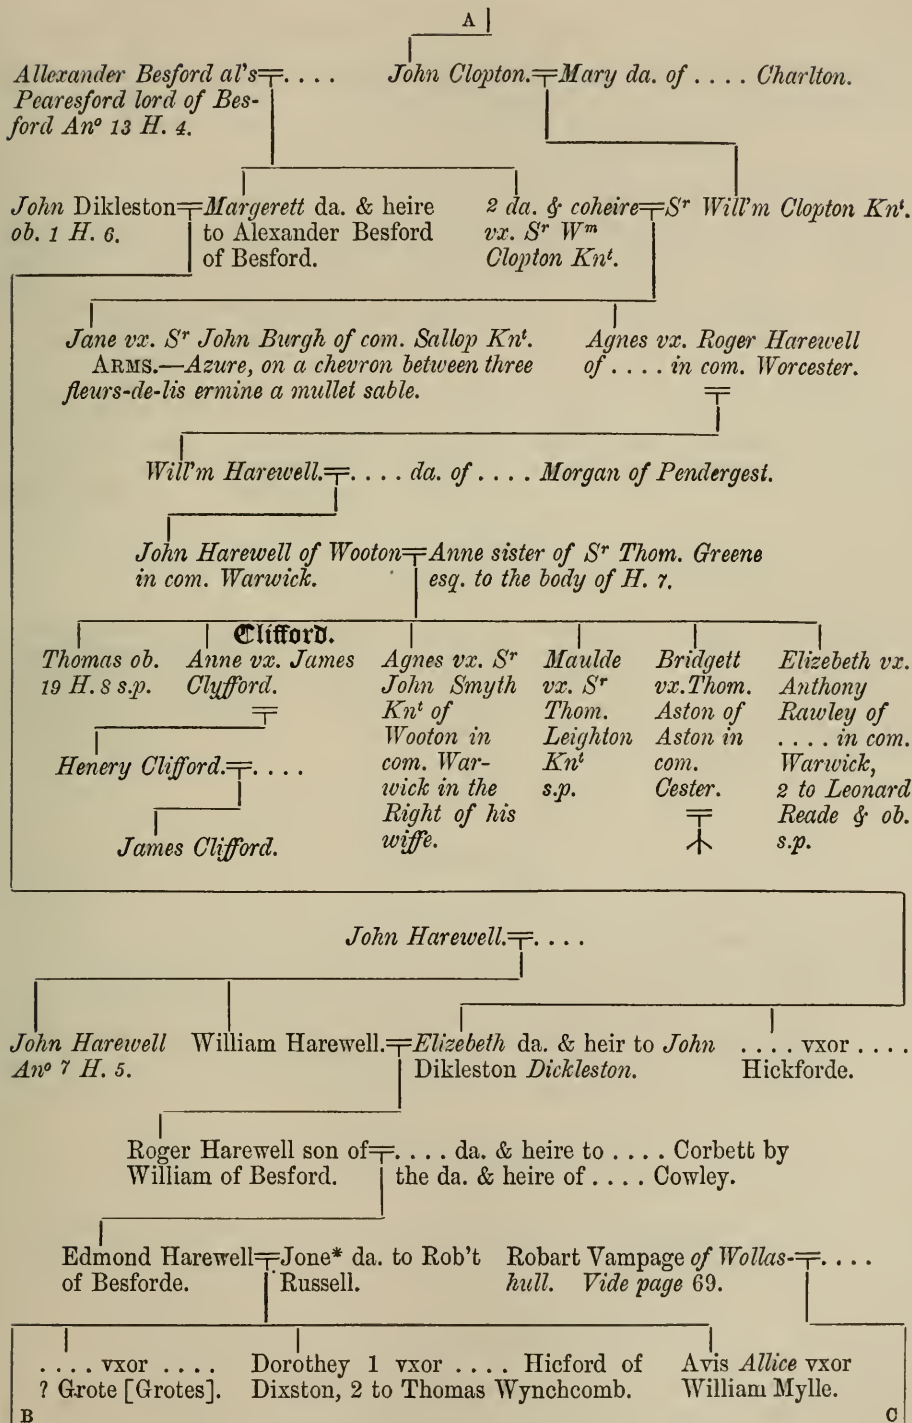 A
Allexander Besford al's=. . . .
Pearesford lord of Bes-
ford Anº 13 H. 4.
John Clopton.=Mary da. of . . . . Charlton.
John Dikleston=Margerett da. & heire
ob. 1 H. 6.
to Alexander Besford
of Besford.
2 da. & coheire=Sʳ Will'm Clopton Knᵗ.
vx. Sʳ Wᵐ
Clopton Knᵗ.
Jane vx. Sʳ John Burgh of com. Sallop Knᵗ.
ARMS.—Azure, on a chevron between three
fleurs-de-lis ermine a mullet sable.
Agnes vx. Roger Harewell
of . . . . in com. Worcester.
Will'm Harewell.=. . . . da. of . . . . Morgan of Pendergest.
John Harewell of Wooton=Anne sister of Sʳ Thom. Greene
in com. Warwick. esq. to the body of H. 7.
Clifford.
Thomas ob.
19 H. 8 s.p.
Anne vx. James
Clyfford.
Henery Clifford.=. . . .
James Clifford.
Agnes vx. Sʳ
John Smyth
Knᵗ of
Wooton in
com. War-
wick in the
Right of his
wiffe.
Maulde
vx. Sʳ
Thom.
Leighton
Knᵗ
s.p.
Bridgett
vx.Thom.
Aston of
Aston in
com.
Cester.
Elizebeth vx.
Anthony
Rawley of
. . . . in com.
Warwick,
2 to Leonard
Reade & ob.
s.p.
John Harewell.=. . . .
John Harewell
Anº 7 H. 5.
William Harewell.=Elizebeth da. & heir to John
Dikleston Dickleston.
. . . . vxor . . . .
Hickforde.
Roger Harewell son of=. . . . da. & heire to . . . . Corbett by
William of Besford. the da. & heire of . . . . Cowley.
Edmond Harewell=Jone* da. to Rob't
of Besforde. Russell.
Robart Vampage of Wollas-=. . . .
hull. Vide page 69.
. . . . vxor . . . .
? Grote [Grotes].
Dorothey 1 vxor . . . . Hicford of
Dixston, 2 to Thomas Wynchcomb.
Avis Allice vxor
William Mylle.
B
C